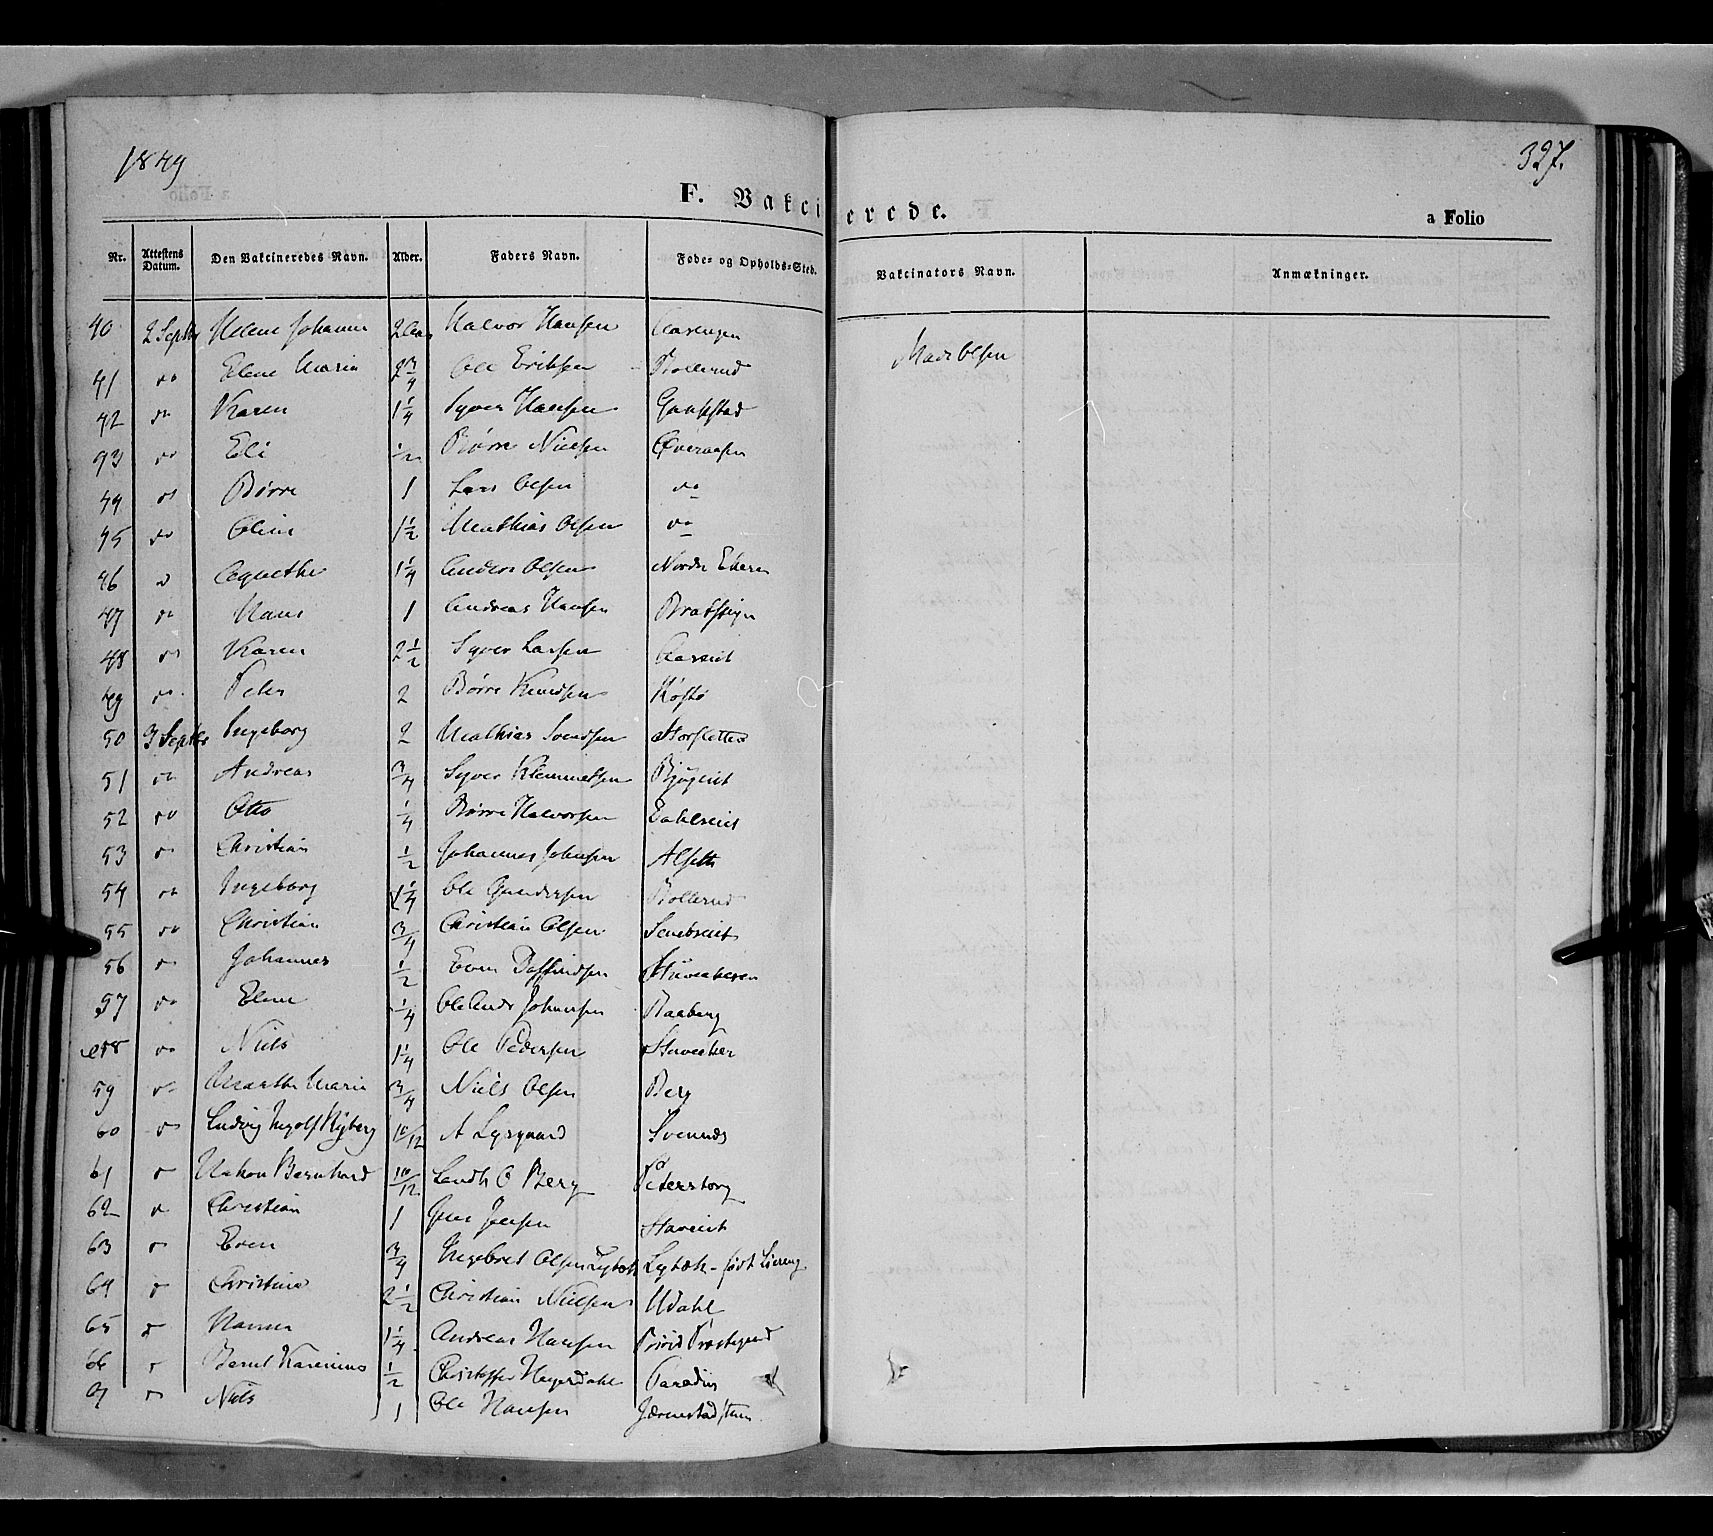 1849
327.
F. Vakcinerede.
a Folio
Nr. Attestens Datum. Den Vakcineredes Navn. Alder. Faders Navn. Føde- og Opholds-Sted. Vakcinators Navn. Anmærkninger.
40 2 Septbr Helene Johanne 2 Aar Halvor Hansen Aasengen
Mads Olsen
41 do Elene Maria 2 3/4 Ole Eriksen Bollerud
42 do Karen 1 1/4 Syver Hansen
43 do Eli 1/2 Børre Nielsen Øveraasen
44 do Børre 1 Lars Olsen do
45 do Oline 1 1/2 Mathias Olsen do
46 do Agnethe 1 1/4 Anders Olsen Nordre Ekern
47 do Hans 1 Andreas Hansen
48 do Karen 2 1/2 Syver Larsen
49 do Peter 2 Børre Knudsen
50 3 Septbr Ingeborg 2 Mathias Svendsen Storsletten
51 do Andreas 3/4 Syver Klemmetsen
52 do Otto 1/4 Børre Halvorsen
53 do Christian 1/2 Johannes Johnsen Alseth
54 do Ingeborg 1 1/4 Ole Gundersen Bollerud
55 do Christian 3/4 Christian Olsen
56 do Johannes 1/2 Even Daffindsen
57 do Elene 1/4 Ole Andr Johansen Raaberg
58 do Niels 1 1/4 Ole Pedersen
59 do Marthe Marie 3/4 Niels Olsen Berg
60 do Ludvig Ingolf Nyberg 10/12 A Lysgaard Svennæs
61 do Hakon Bernhard 10/12 Landh O Berg Petersborg
62 do Christian 1 Jensen
63 do Even 3/4 Ingebret Olsen Lybæk Lybæk - født Løkeng
64 do Christine 2 1/2 Christian Nielsen Udahl
65 do Hanna 1 1/4 Andreas Hansen Biri Præstegaard
66 do Bernt Karenius 1/2 Christopher Heyerdahl Paradis
67 do Niels 1 Ole Hansen